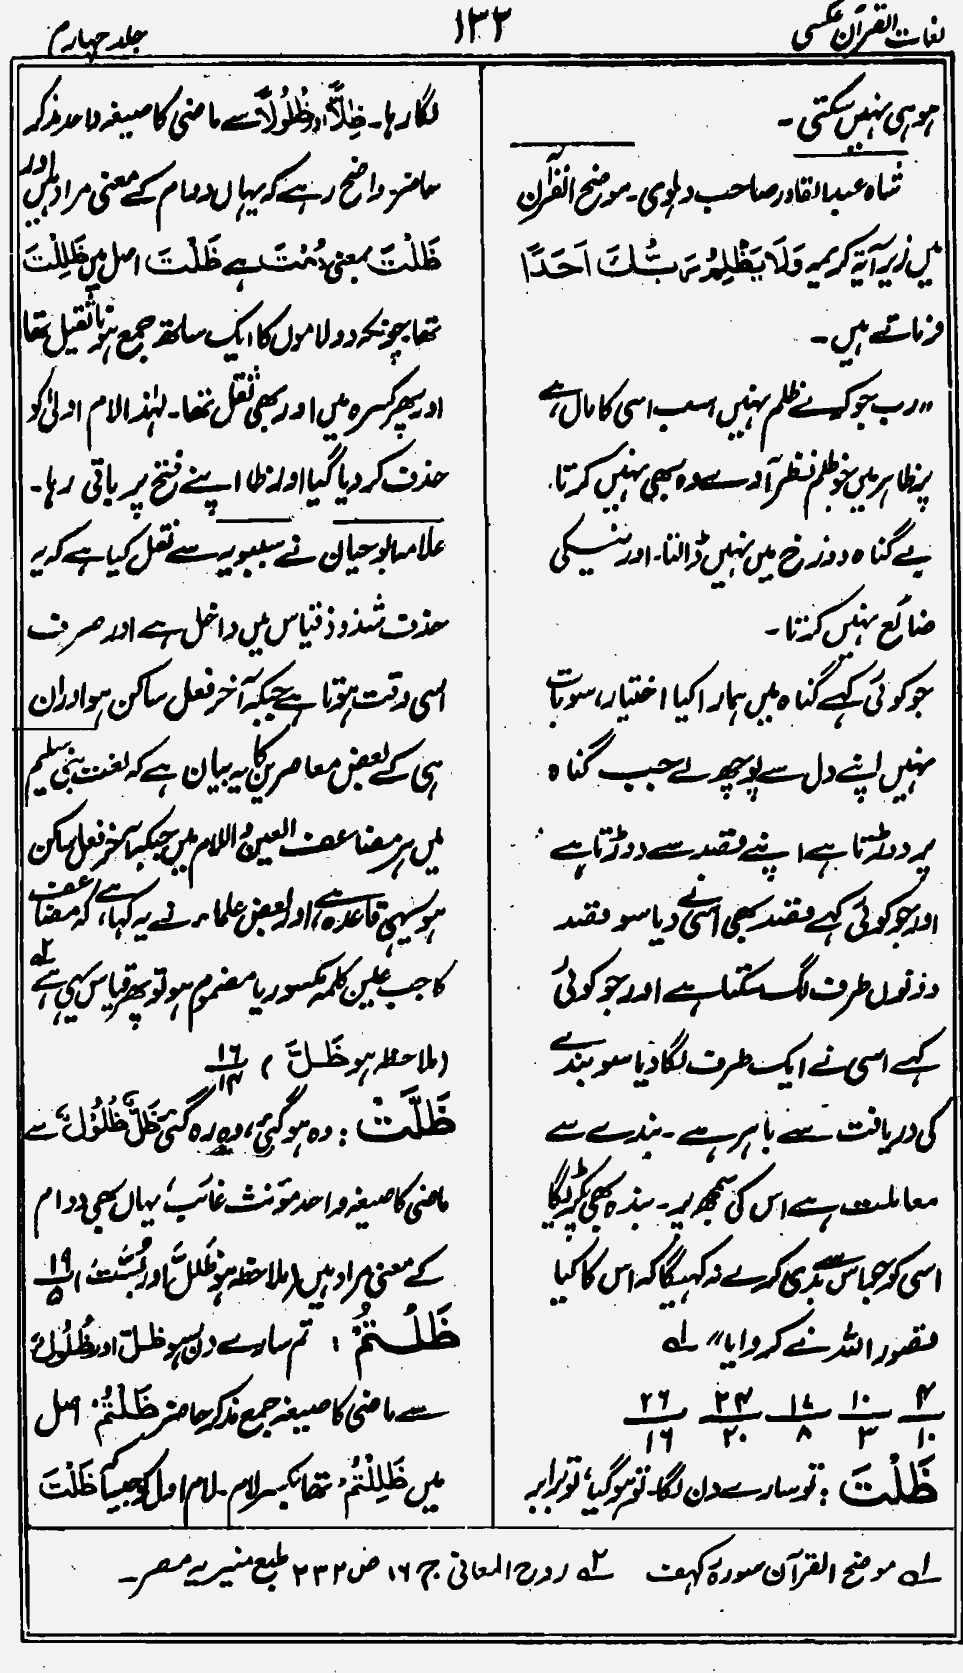 لغات القرآن عکسی
۱۳۲
جلد چہارم
ہو ہی نہیں سکتی۔
شاہ عبدالقادر صاحب دہلوی۔ موضح القرآن
میں زیر آیۃ کریمہ وَلَا یَظْلِمُ رَبُّكَ اَحَدًا
فرماتے ہیں۔
„ رب جو کرے ظلم نہیں، سب اسی کا مال ہے
پر ظاہر میں جو ظلم نظر آوے وہ بھی نہیں کرتا.
بے گناہ دوزخ میں نہیں ڈالتا۔ اور نیکی
ضائع نہیں کرتا۔
جو کوئی کہے گناہ میں ہمارا کیا اختیار، سو بات
نہیں اپنے دل سے پوچھ لے جب گناہ
پر دوڑتا ہے اپنے قصد سے دوڑتا ہے
اور جو کوئی کہے قصد بھی اسی نے دیا سو قصد
دونوں طرف لگ سکتا ہے اور جو کوئی
کہے اسی نے ایک طرف لگا دیا سو بندے
کی دریافت سے باہر ہے۔ بندے سے
معاملت ہے اس کی سمجھ پر۔ بندہ بھی پکڑیگا
اسی کو جو اس سے بدی کرے نہ کہیگا کہ اس کا کیا
قصور اللہ نے کروایا‟ لہ
۴/۱۰ ۱۰/۳ ۱۷/۸ ۲۴/۲۰ ۲۶/۱۶
ظَلْتَ : تو سارے دن لگا۔ تو ہوگیا، تو برابر
لگا رہا۔ ظِلًّا اور ظُلُوْلًا سے ماضی کا صیغہ واحد مذکر
حاضر۔ واضح رہے کہ یہاں دوام کے معنی مراد ہیں اور
ظَلْتَ بمعنی دُمْتَ ہے ظَلْتَ اصل میں ظَلِلْتَ
تھا چونکہ دو لاموں کا ایک ساتھ جمع ہونا ثقیل تھا
اور پھر کسرہ میں اور بھی ثقل تھا۔ لہٰذا لام اولیٰ کو
حذف کر دیا گیا اور ظا اپنے فتح پر باقی رہا۔
علامہ ابو حیان نے سیبویہ سے نقل کیا ہے کہ یہ
حذف شذوذ قیاس میں داخل ہے اور صرف
اسی وقت ہوتا ہے جبکہ آخر فعل ساکن ہو اور ان
ہی کے بعض معاصرین کا یہ بیان ہے کہ لغت بنی سلیم
میں ہر مضاعف العین و اللام میں جبکہ آخر فعل ساکن
ہو یہی قاعدہ ہے، اور بعض علماء نے یہ کہا ہے، کہ مضاعف
کا جب عین کلمہ مکسور یا مضموم ہو تو پھر قیاس یہی ہے ۲ہ
(ملاحظہ ہو ظَلَّ ) ۱۶/۱۴
ظَلَّتْ : وہ ہوگئی، وہ رہ گئی ظَلٌّ ظُلُوْلٌ، سے
ماضی کا صیغہ واحد مؤنث غائب، یہاں بھی دوام
کے معنی مراد ہیں (ملاحظہ ہو ظَلَّ اور ۱۹/۵
ظَلْتُمْ : تم سارے دن رہو ظلّ اور ظُلُوْلٌ
سے ماضی کا صیغہ جمع مذکر حاضر ظَلْتُمْ اصل
میں ظَلِلْتُمْ تھا بکسر لام۔ لام اول کو جیسا کہ ظَلْتَ
لہ موضح القرآن سورۃ کہف ۲ہ روح المعانی ج ۱۶ ص ۲۳۲ طبع منیریہ مصر۔